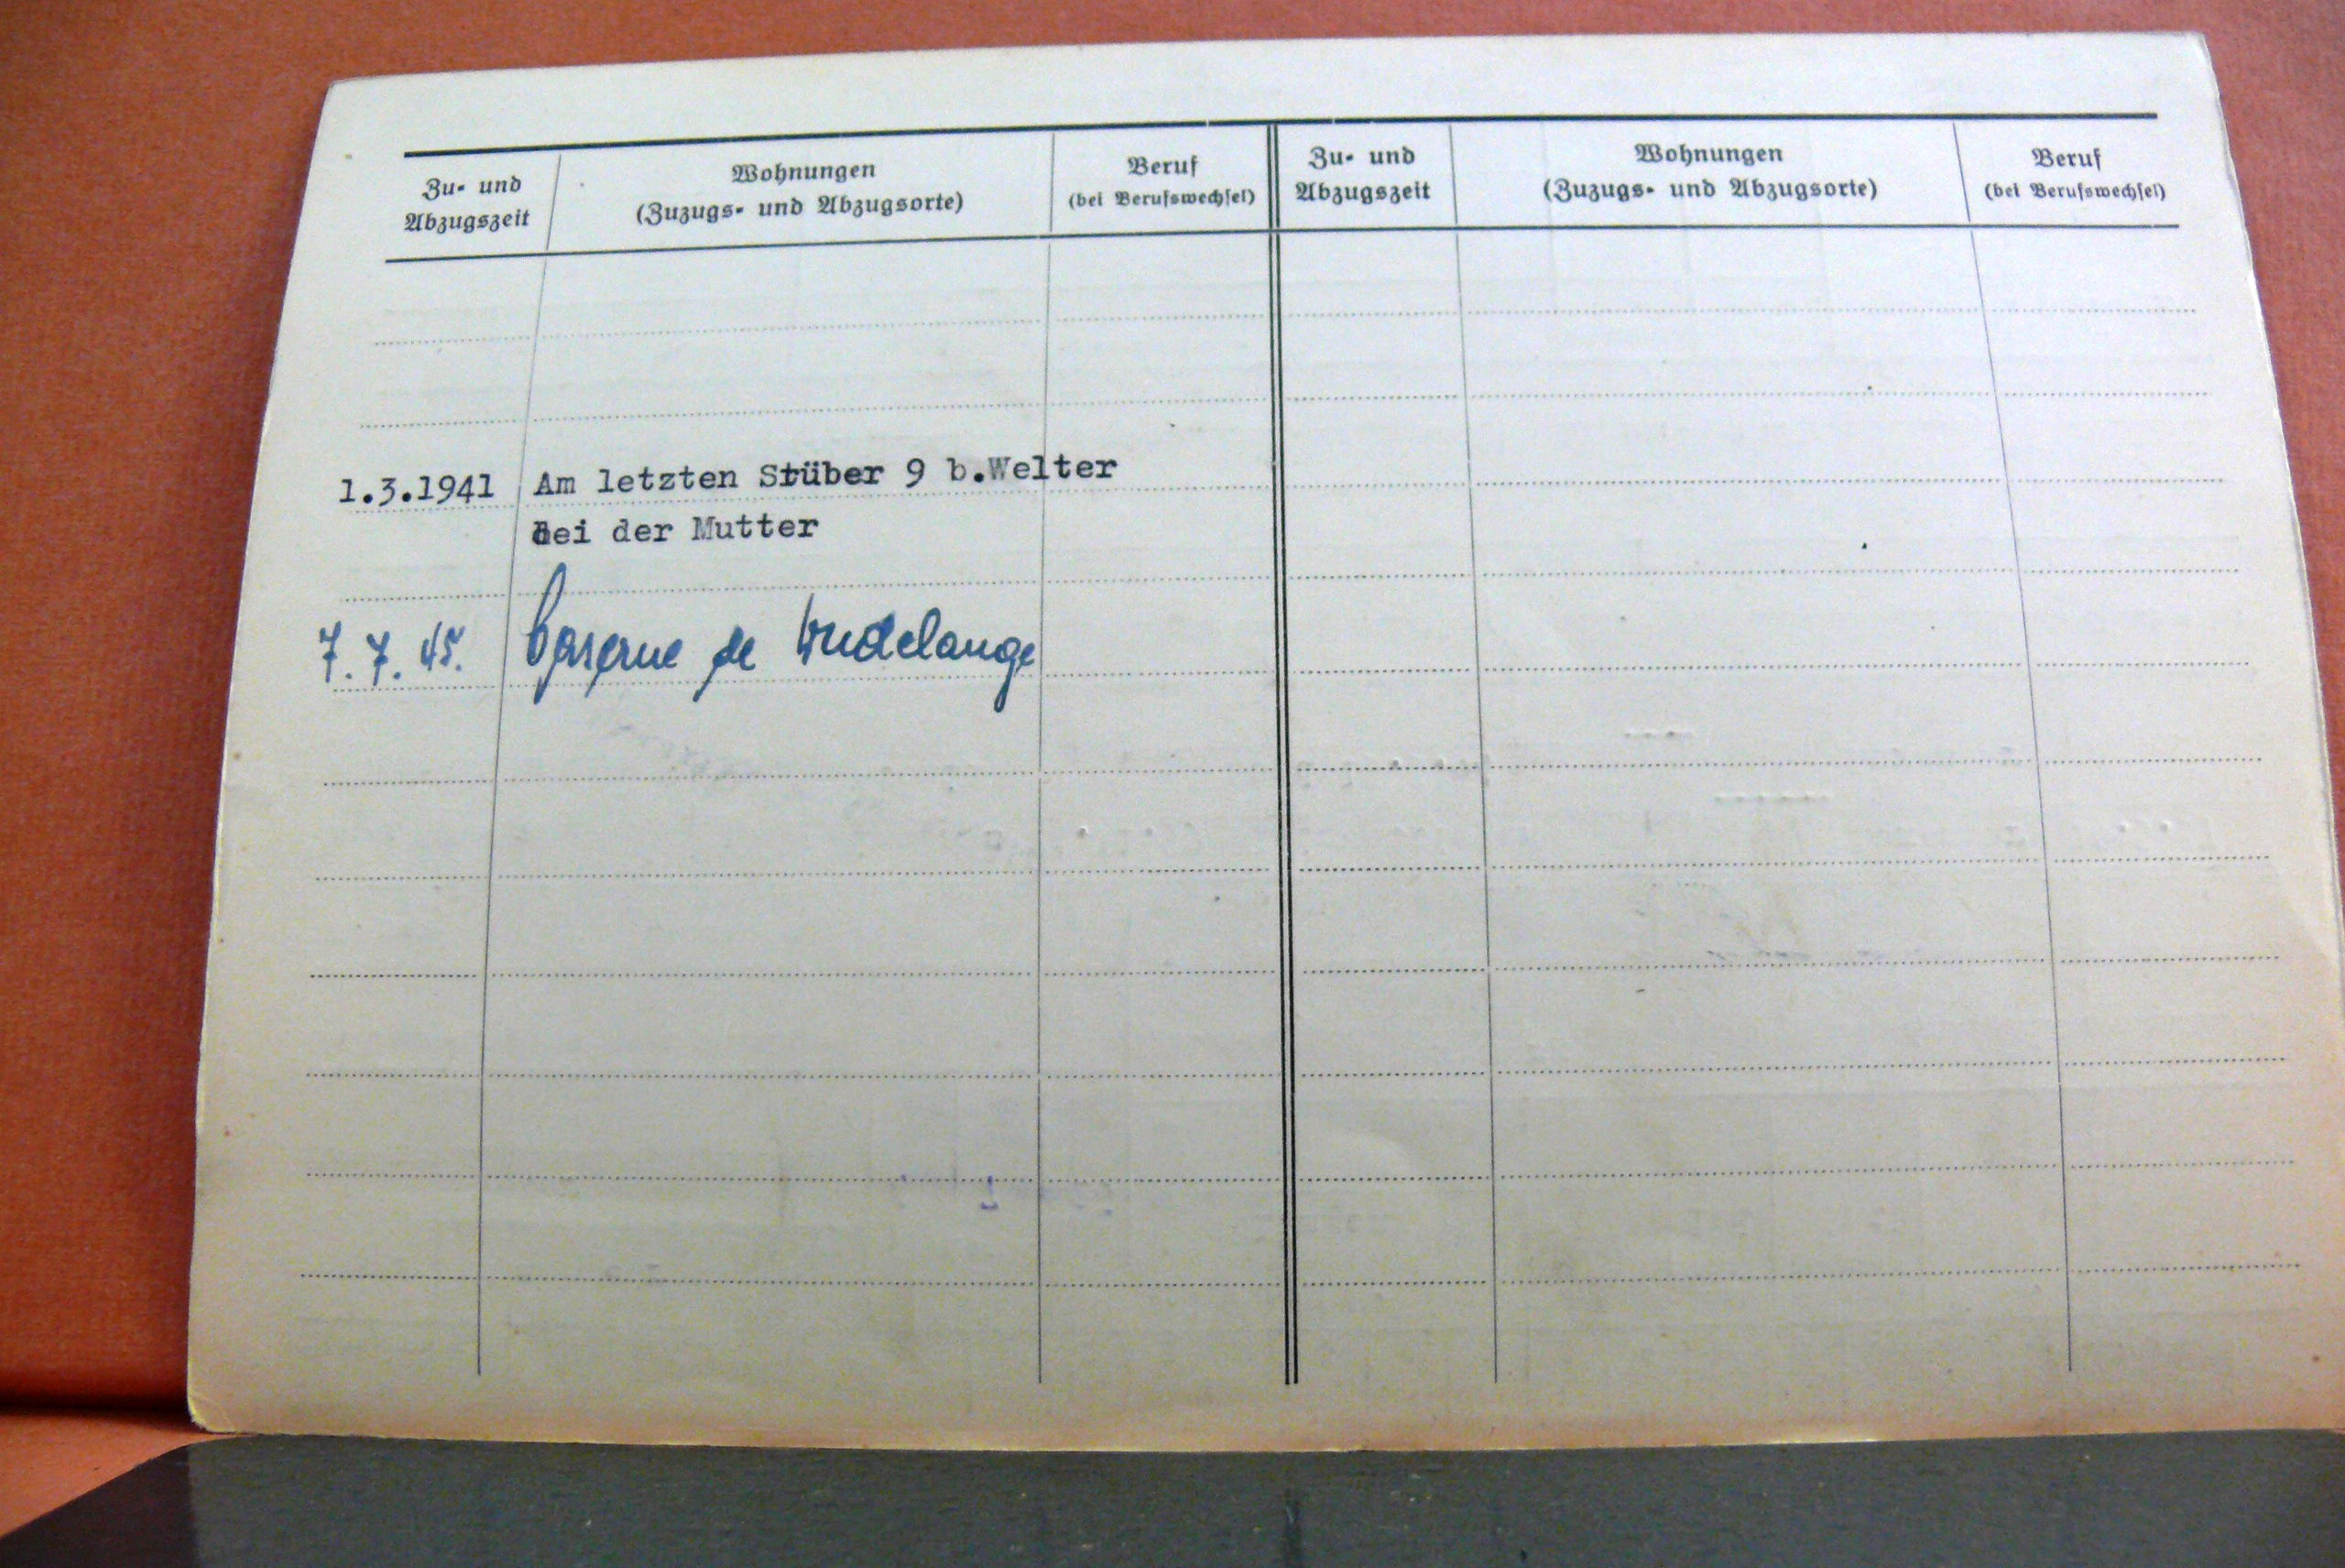 Zu- und Abzugszeit
Wohnungen
(Zuzugs- und Abzugsorte)
Beruf
(bei Berufswechsel)
Zu- und Abzugszeit
Wohnungen
(Zuzugs- und Abzugsorte)
Beruf
(bei Berufswechsel)
1.3.1941 Am letzten Stüber 9 b.Welter
bei der Mutter
7.7.45. Caserne de Dudelange